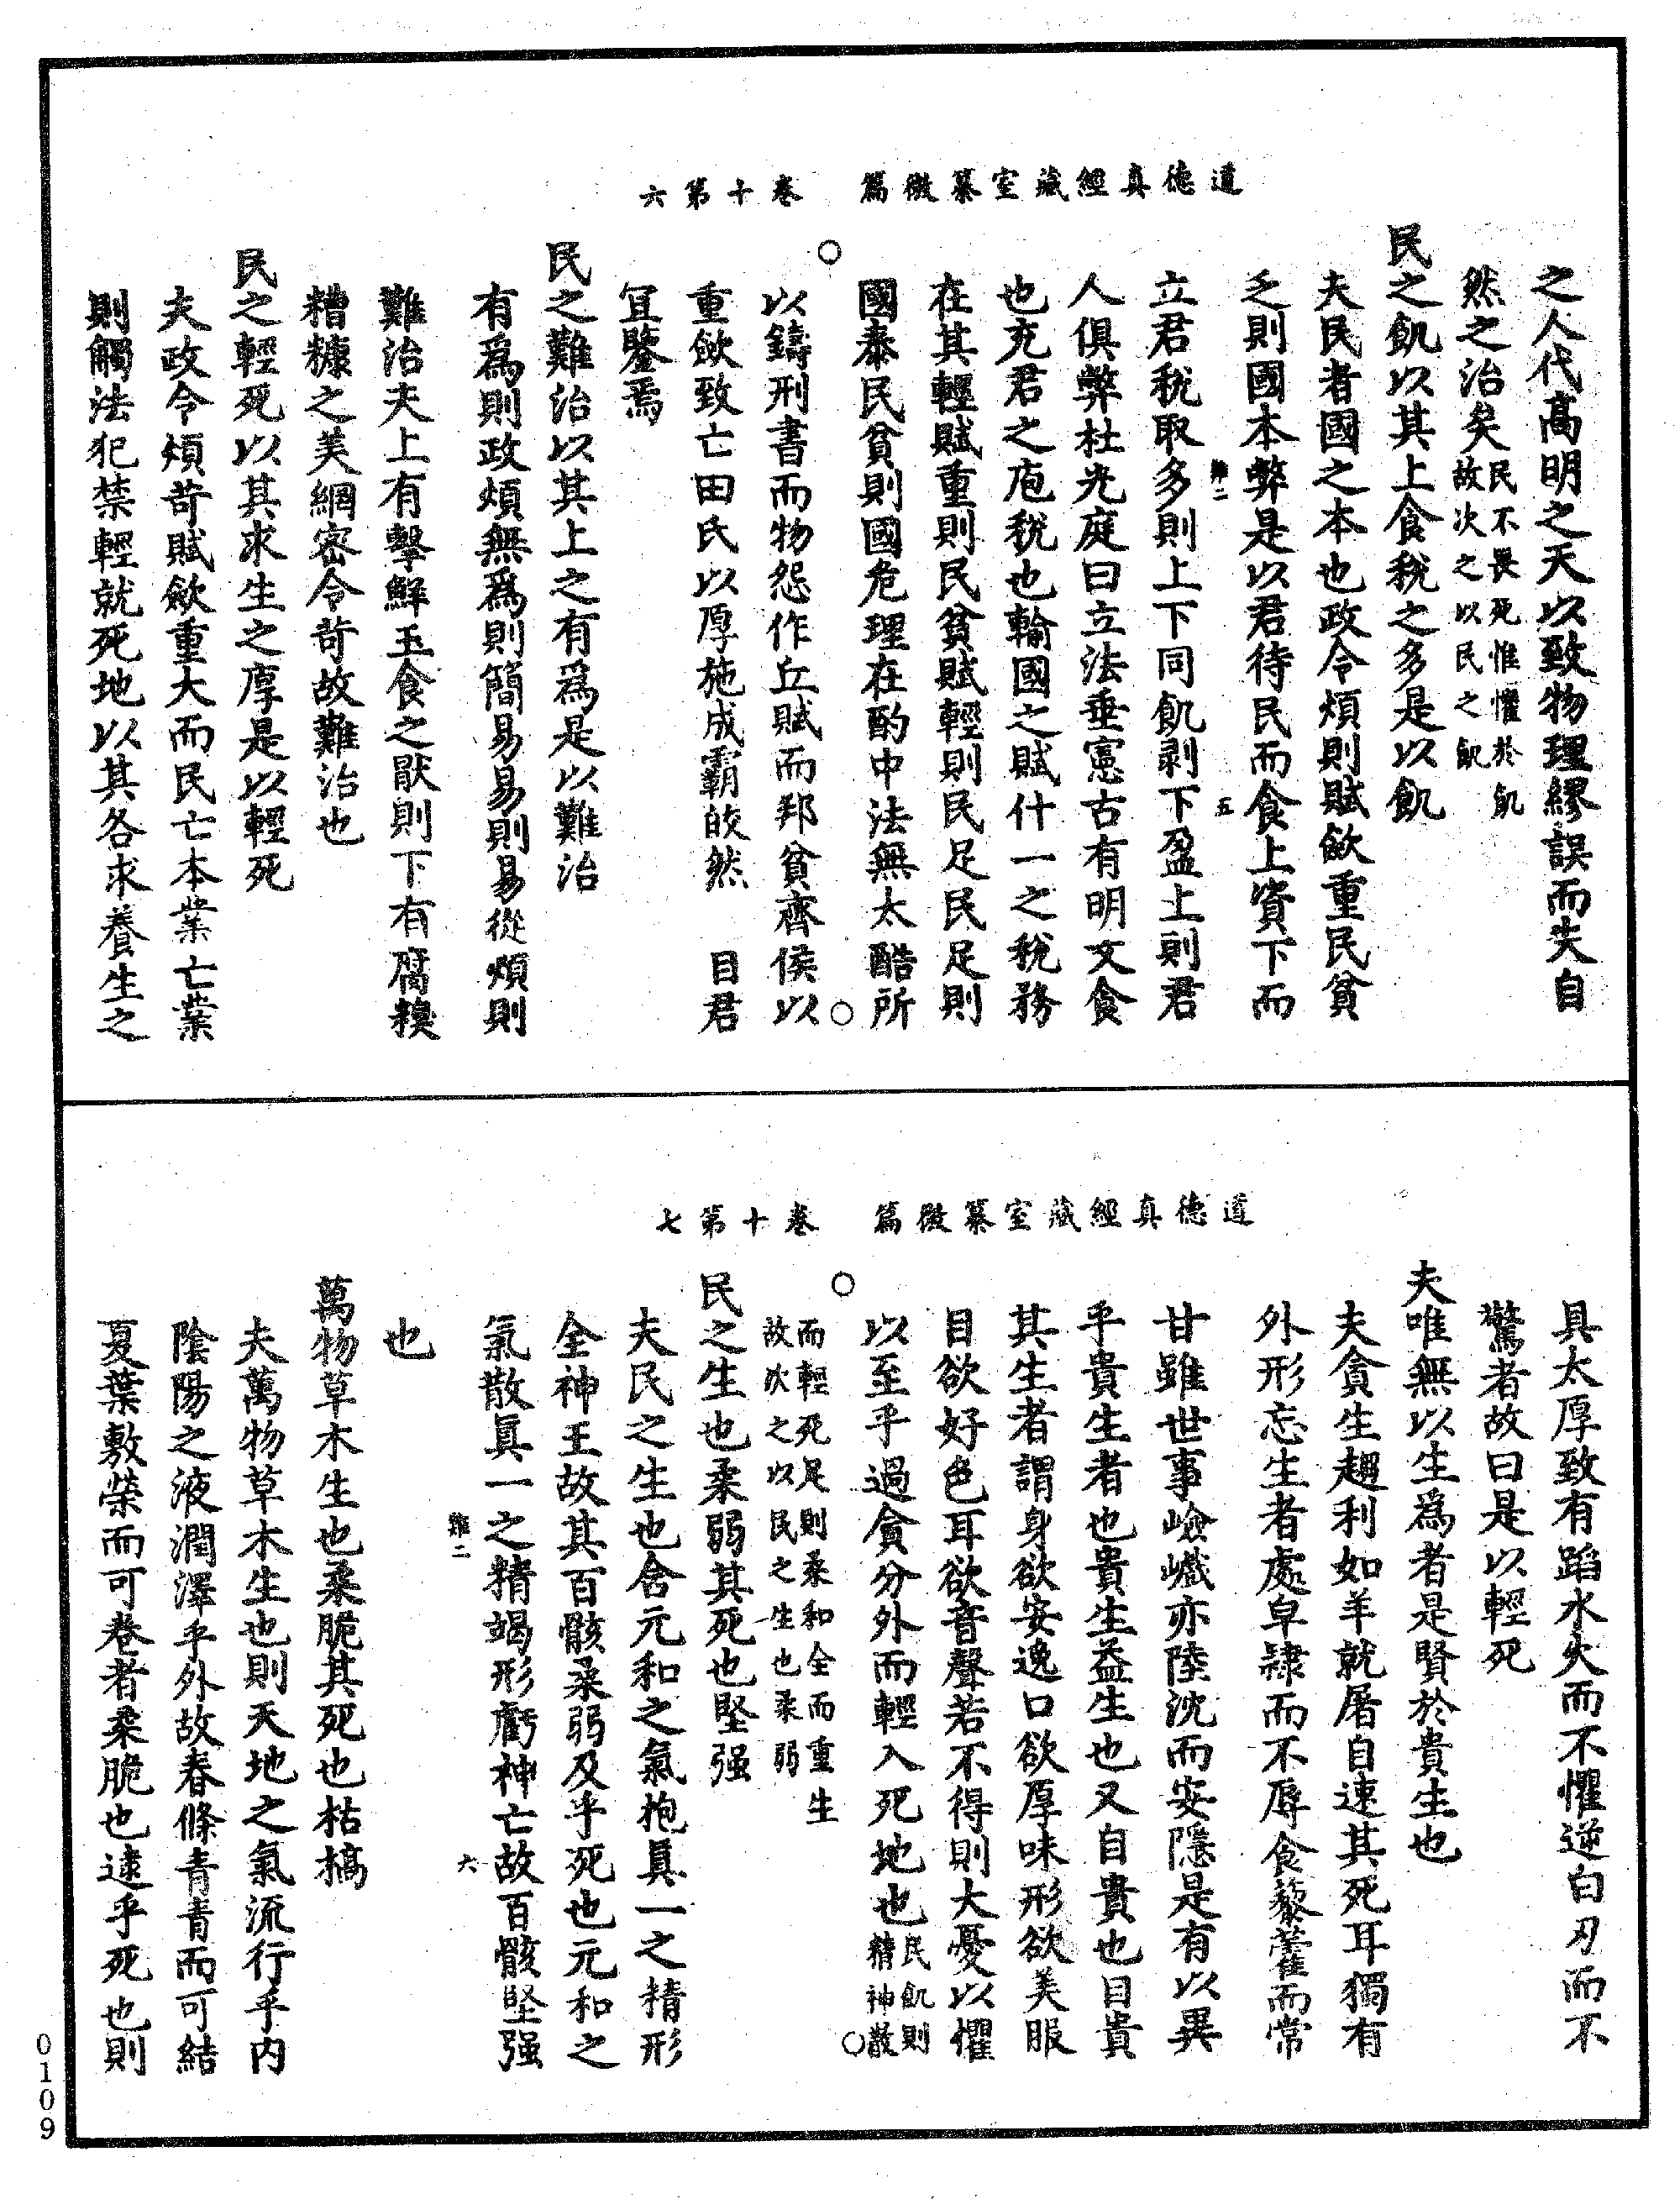 道德真經藏室纂微篇　卷十第六
之人代高明之天以致物理繆誤而失自
然之治矣民不畏死惟懼於飢故次之以民之飢
民之飢以其上食稅之多是以飢
夫民者國之本也政令煩則賦歛重民貧
乏則國本弊是以君待民而食上資下而
難二　五
立君稅取多則上下同飢剥下盈上則君
人俱弊杜光庭曰立法垂憲古有明文食
也充君之庖稅也輸國之賦什一之稅務
在其輕賦重則民貧賦輕則民足民足則
國泰民貧則國危理在酌中法無太酷所
以鑄刑書而物怨作丘賦而邦貧齊侯以
重歛致亡田氏以厚施成霸皎然　目君
冝鑒焉
民之難治以其上之有為是以難治
有為則政煩無為則簡易易則易從煩則
難治夫上有擊鮮玉食之猒則下有腐糗
糟糠之美網密令苛故難治也
民之輕死以其求生之厚是以輕死
夫政令煩苛賦歛重大而民亡本業亡業
則觸法犯禁輕就死地以其各求養生之
道德真經藏室纂微篇　卷十第七
具太厚致有蹈水火而不懼逆白刃而不
驚者故曰是以輕死
夫唯無以生為者是賢於貴生也
夫貪生趨利如羊就屠自速其死耳獨有
外形忘生者處皁隷而不辱食藜藿而常
甘雖世事嶮巇亦陸沈而安隱是有以異
乎貴生者也貴生益生也又自貴也目貴
其生者謂身欲安逸口欲厚味形欲美服
目欲好色耳欲音聲若不得則大憂以懼
以至乎過貪分外而輕入死地也民飢則精神散
而輕死足則柔和全而重生故次之以民之生也柔弱
民之生也柔弱其死也堅强
夫民之生也含元和之氣抱真一之精形
全神王故其百骸柔弱及乎死也元和之
氣散真一之精竭形虧神亡故百骸堅强
難二　六
也
萬物草木生也柔脆其死也枯槁
夫萬物草木生也則天地之氣流行乎内
陰陽之液潤澤乎外故春條青青而可結
夏葉敷榮而可卷者柔脆也逮乎死也則
0109